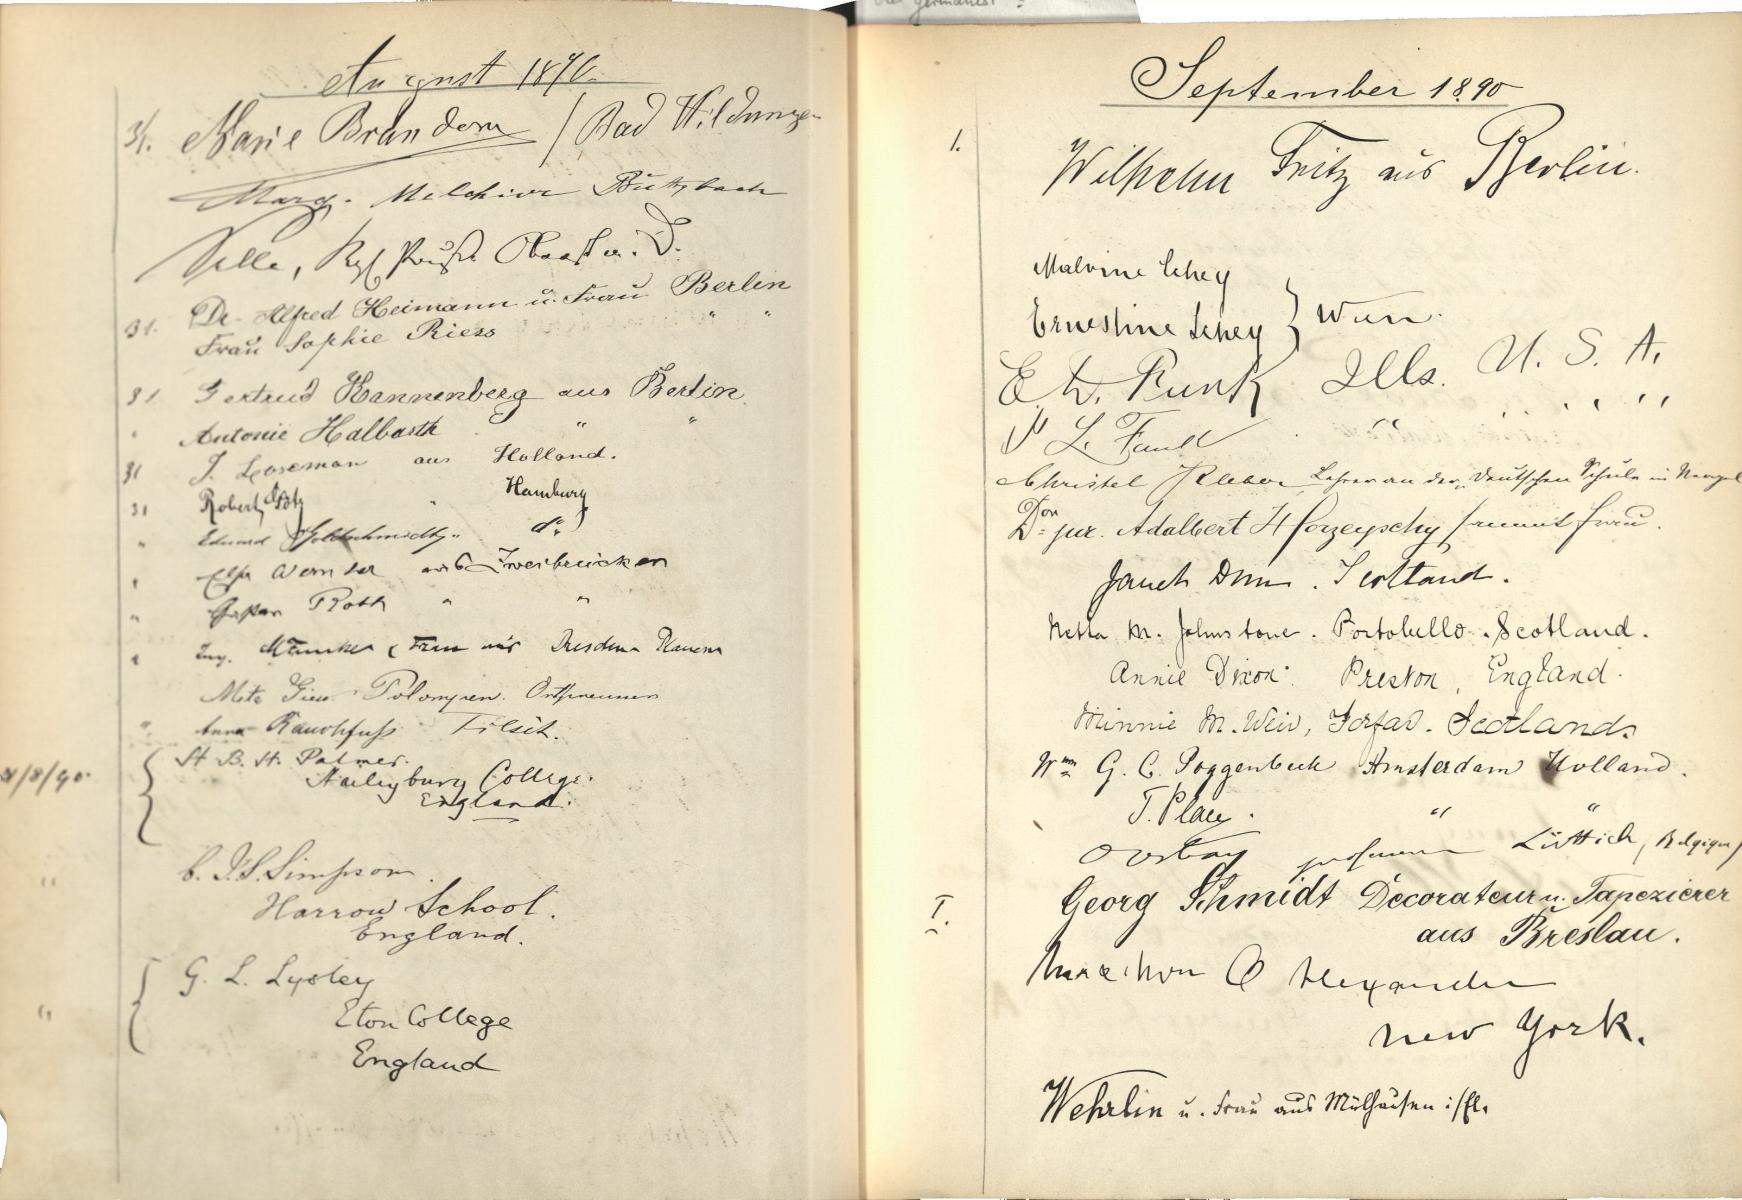 August 1890.
31. Marie Brandom / Bad Wildungen
Marg. Melchior Butzbach
Dr. Alfred Heimann u. Frau Berlin
31. Frau Sophie Riess " "
31 Gertrud Kannenberg aus Berlin.
" Antonie Halbarth " "
31 J. Loseman aus Holland.
31 Robert Götz " Hamburg
" Eduard Goldschmidt " do
" Elsa Werner aus Zweibrücken
" Roth " "
" Ing. Frau aus Dresden Plauen
" Rauchfuss Tilsit.
H. B. H. Palmer.
31/8/90. Haileybury College.
England.
C. J. S. Simpson.
" Harrow School.
England.
G. L. Lysley
" Eton College
England
September 1890
1. Wilhelm Fritz aus Berlin.
Malvine Schey
Ernestine Schey } Wien.
E. W. Runk Ills. U. S. A.
L. Faull " " " "
Christel Lehrer an der Deutschen Schule in Neapel
Dor jur. Adalbert sammt Frau.
Janet Dun. Scotland.
Netta M. Johnstone. Portobello. Scotland.
Annie Dixon. Preston, England.
Minnie M. Weir, Forfar. Scotland.
Wm G. C. Poggenbeek Amsterdam Holland.
T. Place. " "
Lüttich, Belgique
I. Georg Schmidt Decorateur u. Tapezierer
aus Breslau.
Alexander
New York.
Wehrlin u. Frau aus Mülhausen i/El.